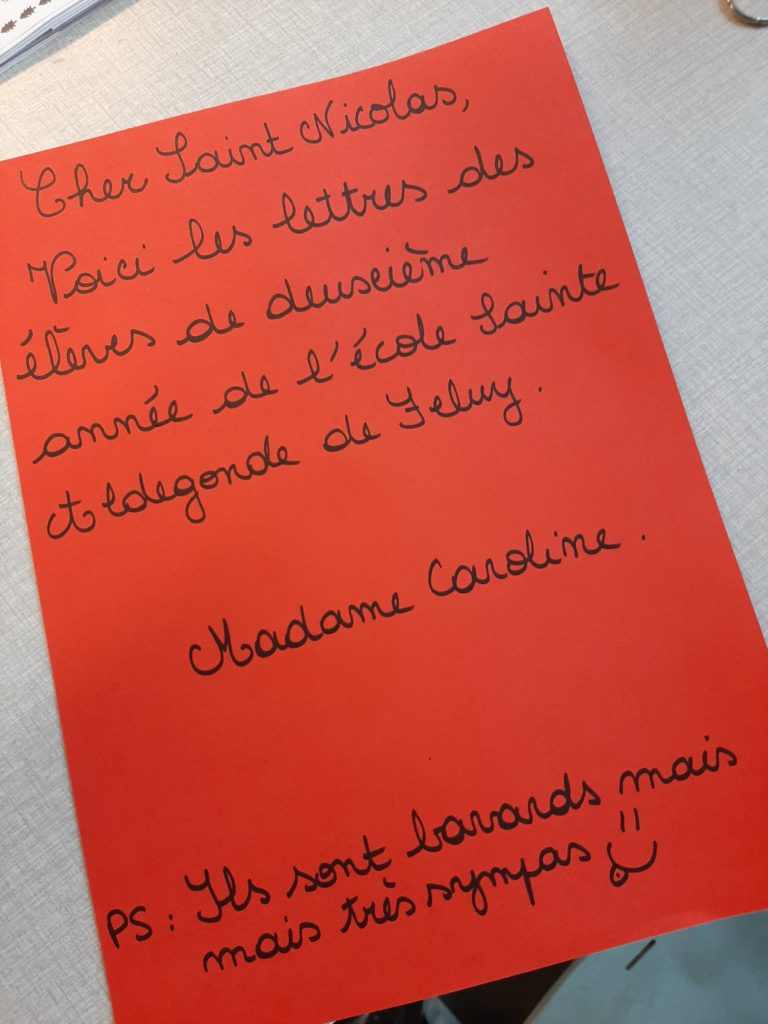 Cher Saint Nicolas,
Voici les lettres des
élèves de deuxième
année de l'école Sainte
Aldegonde de Feluy.
Madame Caroline.
PS: Ils sont bavards mais
mais très sympas